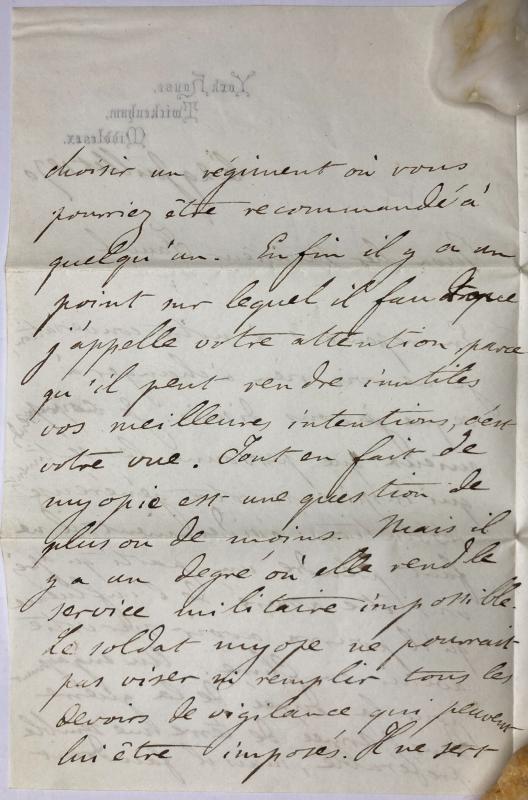 York House,
Twickenham,
Middlesex.
choisir un régiment où vous
pourriez être recommandé à
quelqu'un. Enfin il y a un
point sur lequel il faut que
j'appelle votre attention, parce
qu'il peut rendre inutiles
vos meilleures intentions, c'est
votre vue. Tout en fait de
myopie est une question de
plus ou de moins. Mais il
y a un degré où elle rend le
service militaire impossible.
Le soldat myope ne pourrait
pas viser ni remplir tous les
devoirs de vigilance qui peuvent
lui être imposés. Il ne sert